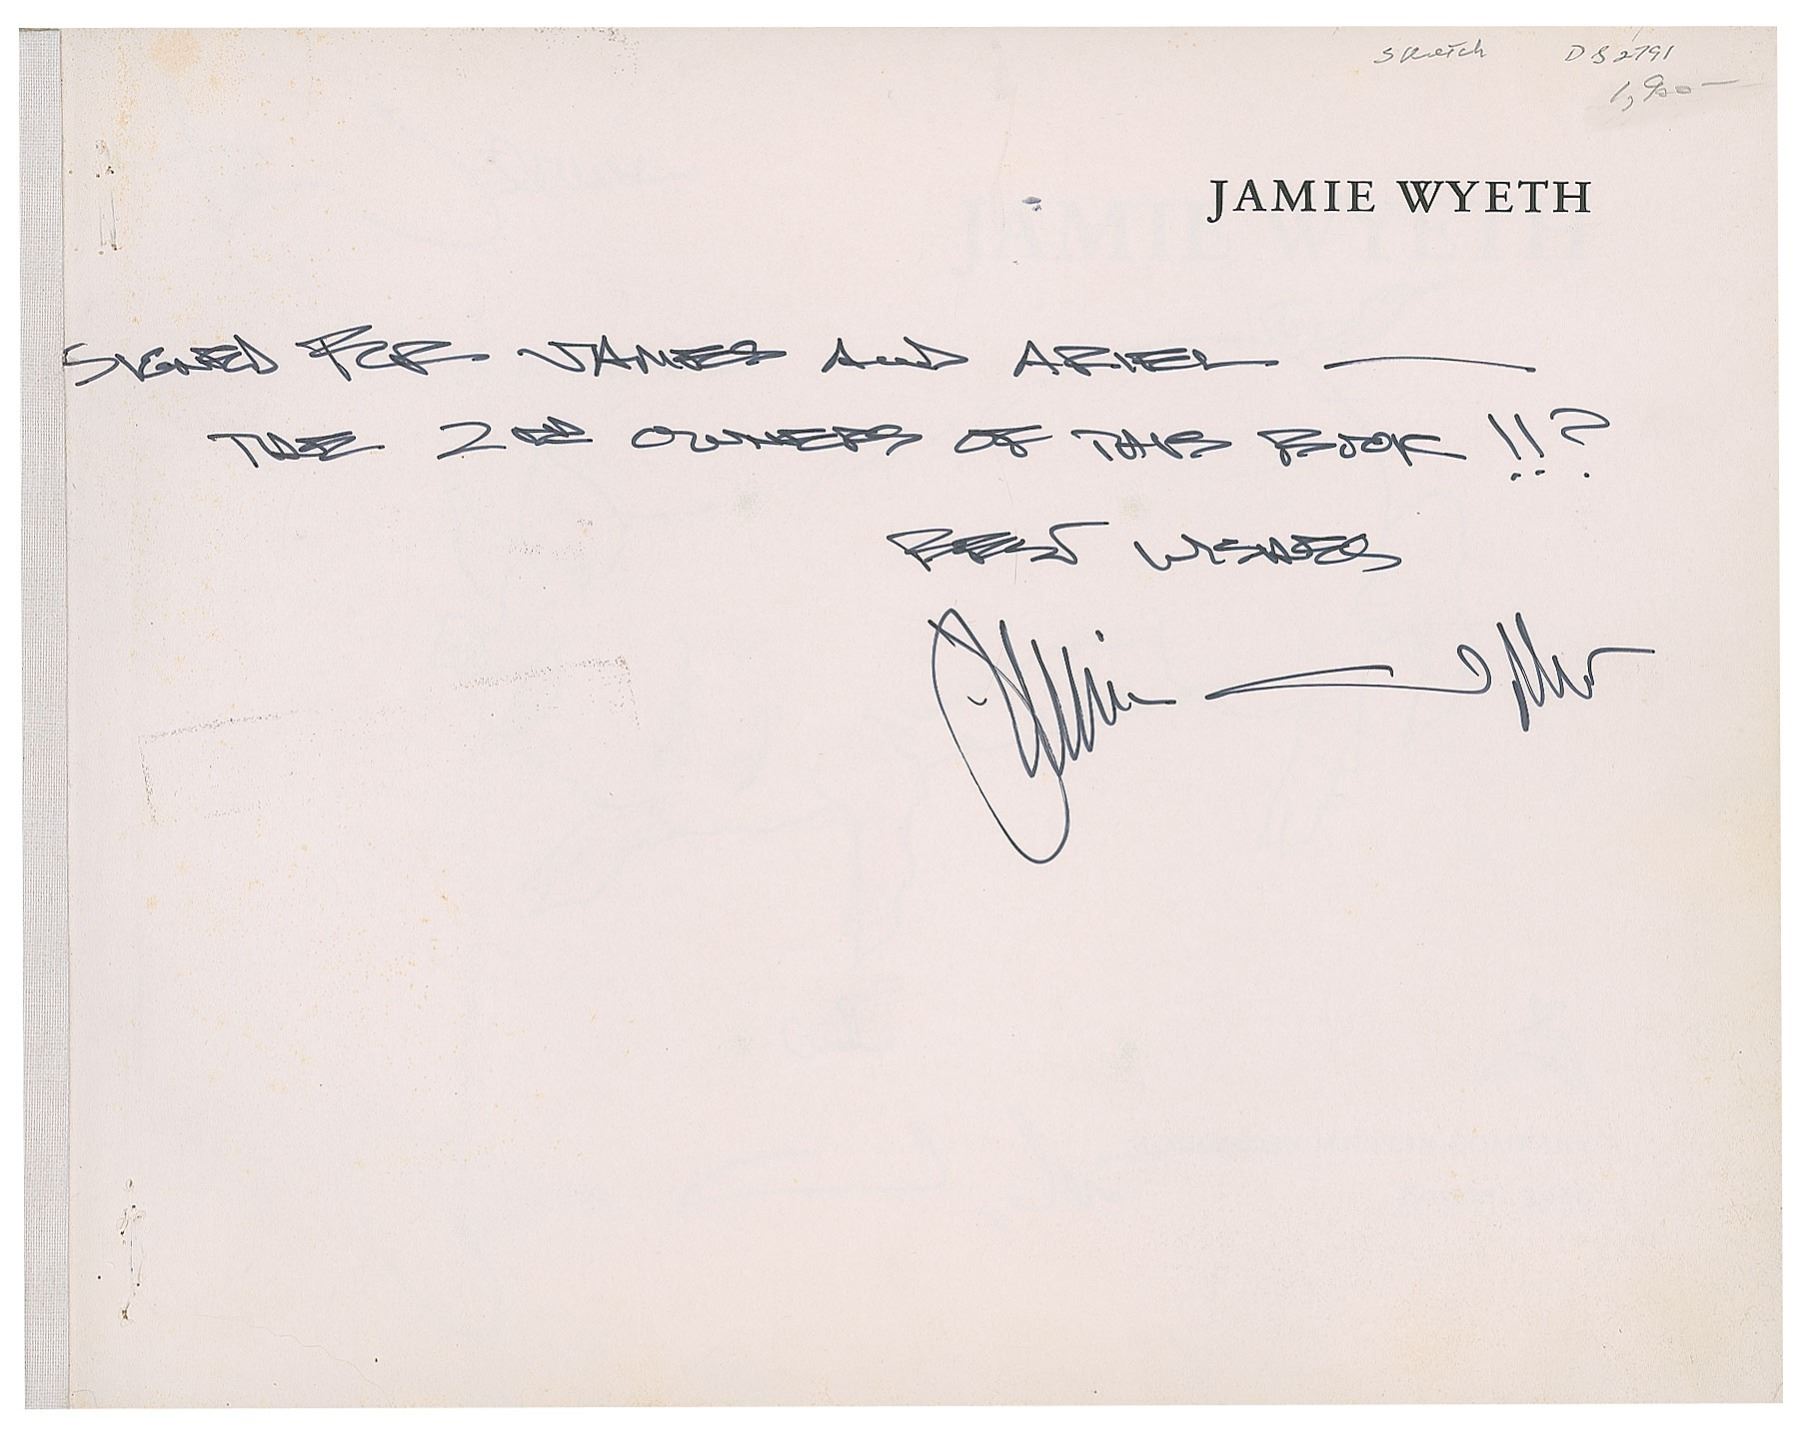 Sketch DS2791
1,900-
JAMIE WYETH
SIGNED FOR JAMES AND ARIEL —
THE 2ND OWNERS OF THIS BOOK !!?
BEST WISHES
Jamie Wyeth